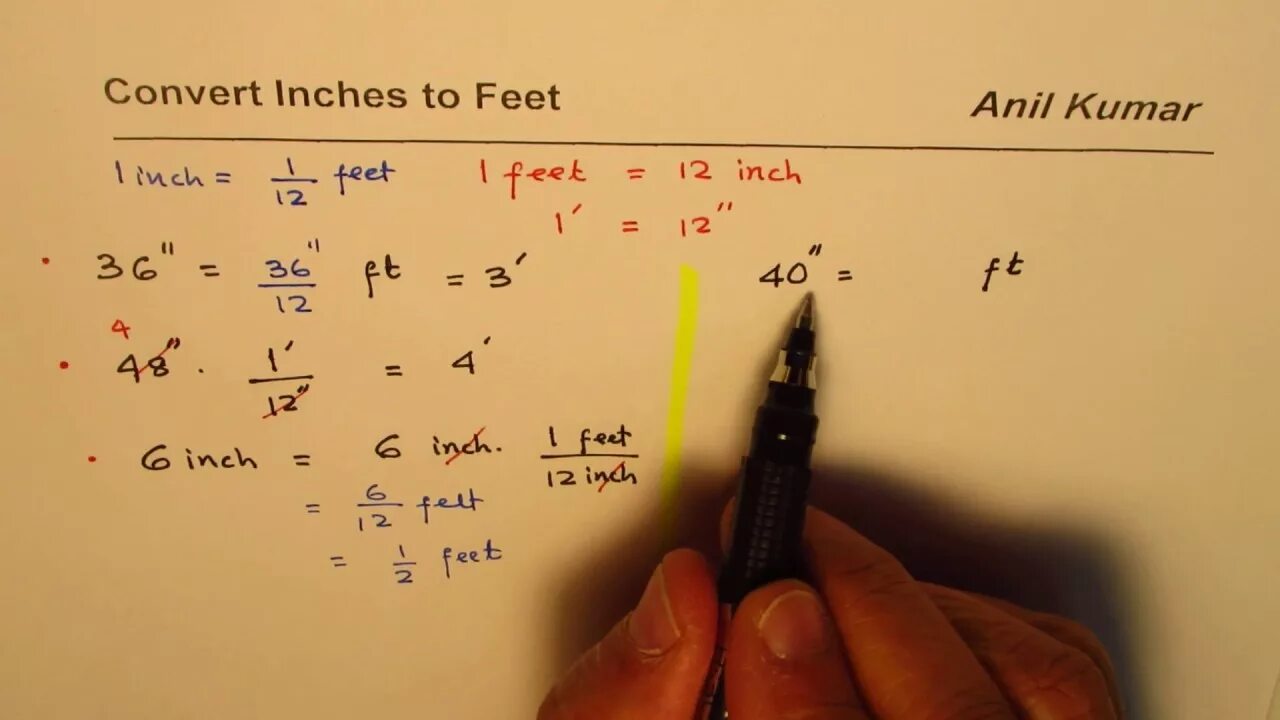 Convert Inches to Feet
Anil Kumar
1 inch = 1/12 feet
1 feet = 12 inch
1' = 12"
• 36" = 36"/12 ft = 3'
4
• 48" . 1'/12" = 4'
• 6 inch = 6 inch. 1 feet/12 inch
= 6/12 feet
= 1/2 feet
40" = ft